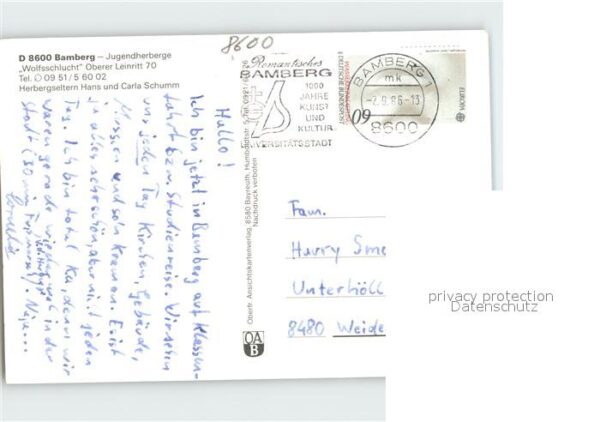 8600
D 8600 Bamberg – Jugendherberge
„Wolfsschlucht" Oberer Leinritt 70
Tel. ✆ 09 51/5 60 02
Herbergseltern Hans und Carla Schumm
Romantisches
BAMBERG
1000
JAHRE
KUNST
UND
KULTUR
UNIVERSITÄTSSTADT
BAMBERG 1
mk
-2.9.86-13
8600
DEUTSCHE BUNDESPOST
EUROPA
60
Hallo!
Ich bin jetzt in Bamberg auf Klassen-
fahrt bzw. Studienreise. Wir sehen
uns jeden Tag Kirchen, Gebäude,
Museen und so'n Kram an. Es ist
ja alles sehr schön, aber nicht jeden
Tag. Ich bin total K.O. denn wir
waren gerade wieder mal in der
Stadt (30 min Fußmarsch). Naja...
Oberfr. Ansichtskartenverlag, 8580 Bayreuth, Humboldtstr.
Nachdruck verboten
OA
B
Fam.
Harry Sme
Unterhöll
8480 Weide
privacy protection
Datenschutz